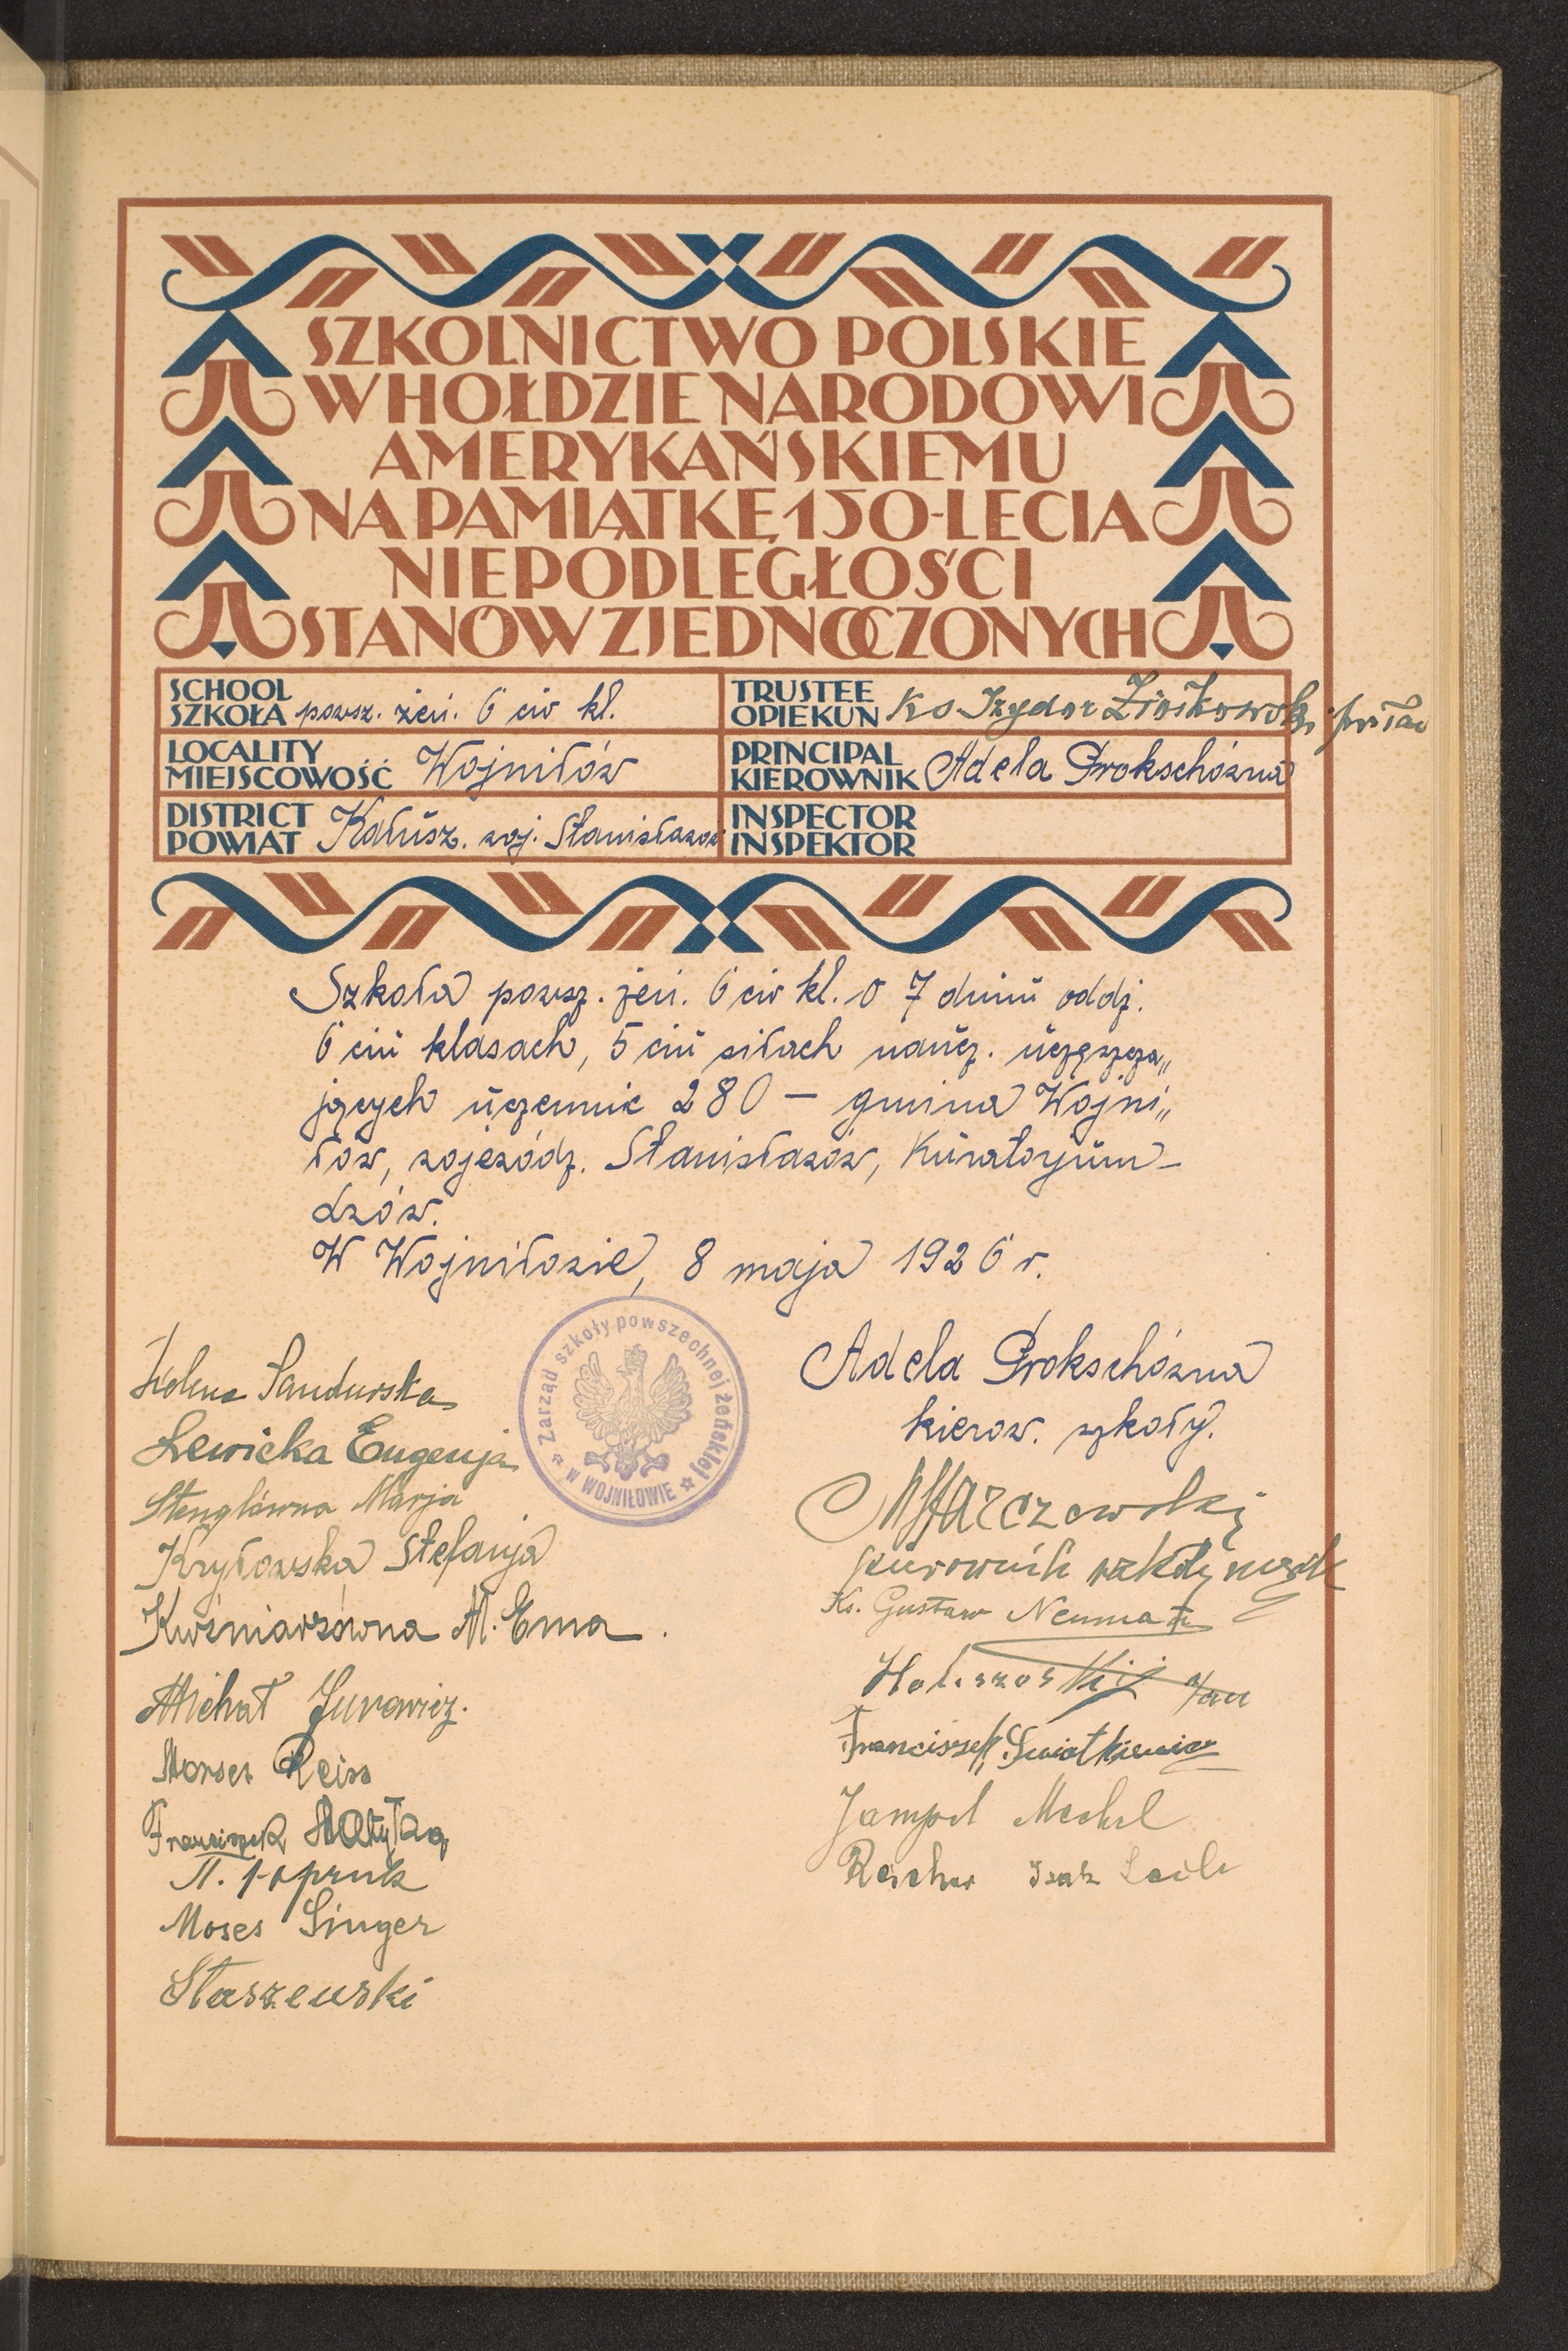 SZKOLNICTWO POLSKIE
W HOŁDZIE NARODOWI
AMERYKAŃSKIEMU
NA PAMIĄTKĘ 150-LECIA
NIEPODLEGŁOŚCI
STANÓW ZJEDNOCZONYCH
SCHOOL
SZKOŁA powsz. żeń. 6 cio kl.
TRUSTEE
OPIEKUN Ks Izydor Ziółkowski
LOCALITY
MIEJSCOWOŚĆ Wojniłów
PRINCIPAL
KIEROWNIK Adela Prokschówna
DISTRICT
POWIAT Kałusz. woj. Stanisławów
INSPECTOR
INSPEKTOR
Szkoła powsz. żeń. 6 cio kl. o 7 dmiu oddz.
6 ciu klasach, 5 ciu siłach naucz. uczęszcza„
jących uczennic 280 – gmina Wojni„
łów, wojewódz. Stanisławów, Kuratorjum –
Lwów.
W Wojniłowie, 8 maja 1926 r.
Zarząd szkoły powszechnej żeńskiej
w WOJNIŁOWIE
Adela Prokschówna
kierow. szkoły.
Sandurska
Lewicka Eugenja
Stenglówna Marja
Kryłowska Stefanja
Kuśniarzówna M. Ema.
Michał Jurawicz.
Reiss
Franciszek
Moses Singer
Staszewski
kierownik szkoły męsk
Ks. Gustaw Neuman
Franciszek Świątkiewicz
Jampel Mechel
Reicher Izak